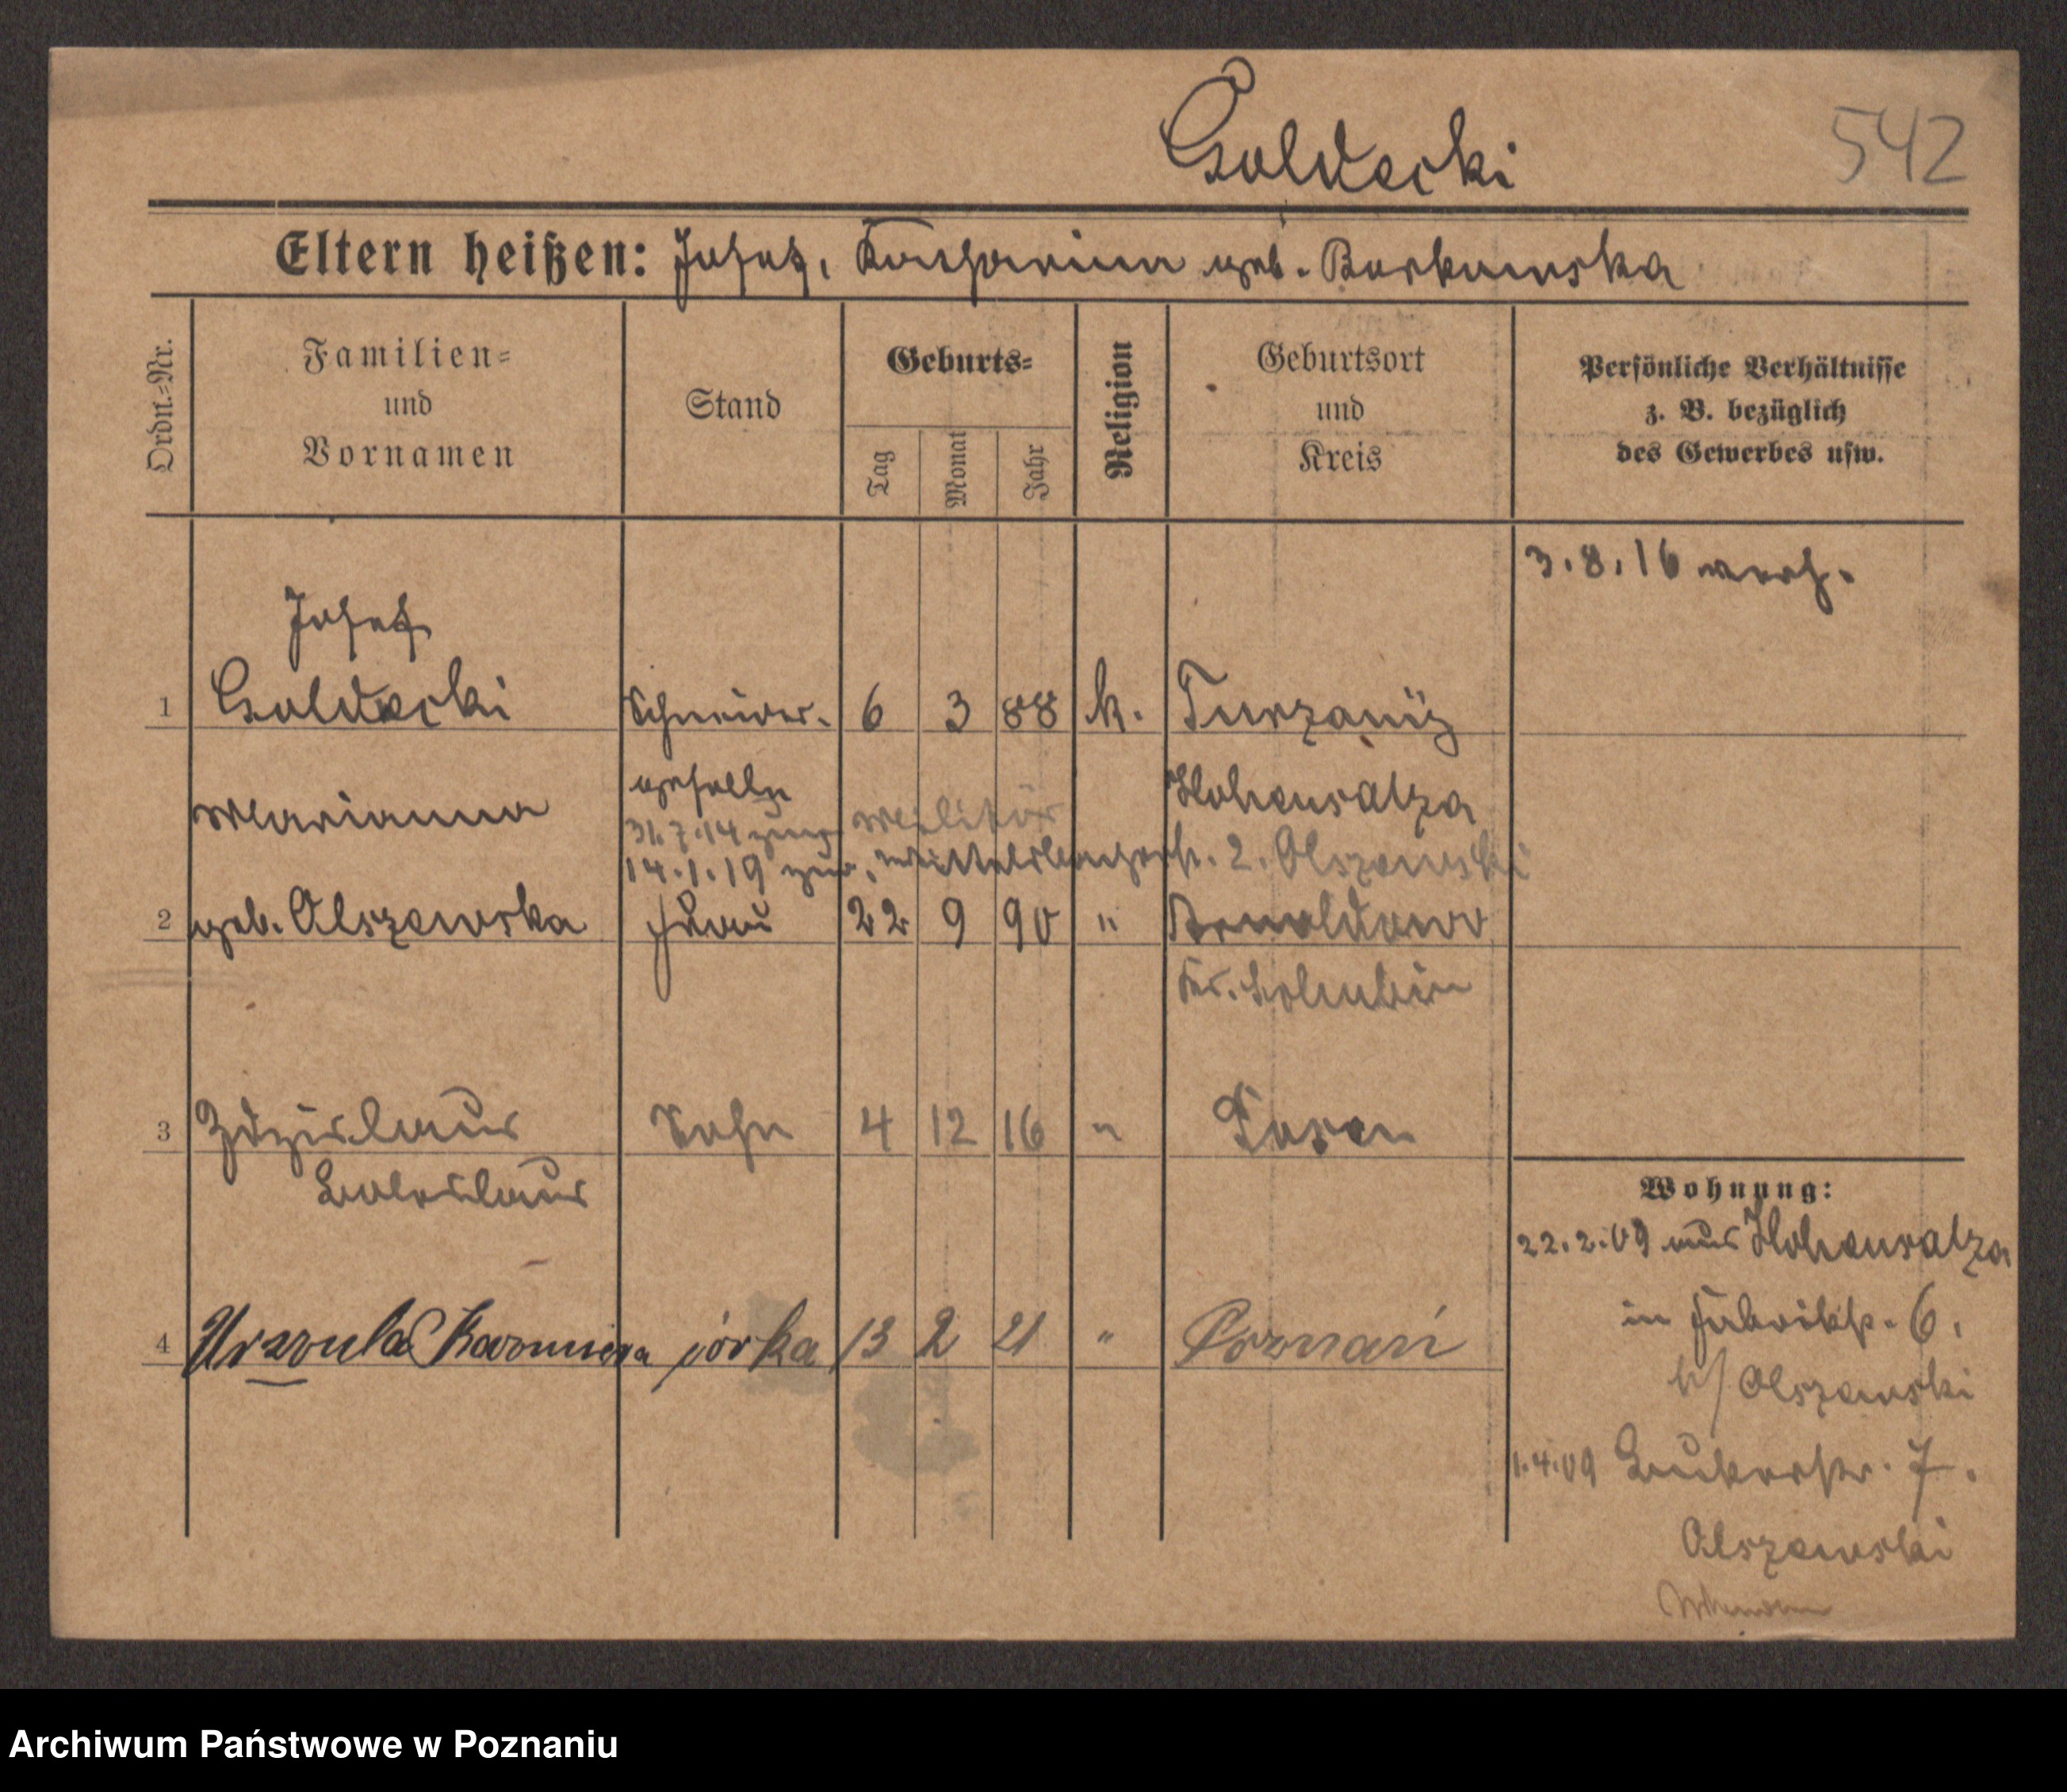 Goldecki
542
Eltern heißen: Josef, Katharina geb. Borkowska
Ordn.=Nr.
Familien=
und
Vornamen
Stand
Geburts=
Tag
Monat
Jahr
Religion
Geburtsort
und
Kreis
Persönliche Verhältnisse
z. B. bezüglich
des Gewerbes usw.
3.8.16 verh.
Josef
1 Goldecki Schneider- 6 3 88 k. Turzaniz
Marianna geselle Hohensalza
31.7.14 zum Militär
14.1.19 zur. 2. Olszewski
2 geb. Olszewska Frau 22 9 90 "
Kr.
3 Zdzislaus Sohn 4 12 16 " Posen
Boleslaus
Wohnung:
22.2.09 aus Hohensalza
in Fabrikstr. 6.
b/ Olszewski
4 Urszula Kazimiera córka 13 2 21 " Poznań
1.4.09 Bukerstr. 7.
Olszewski
Archiwum Państwowe w Poznaniu